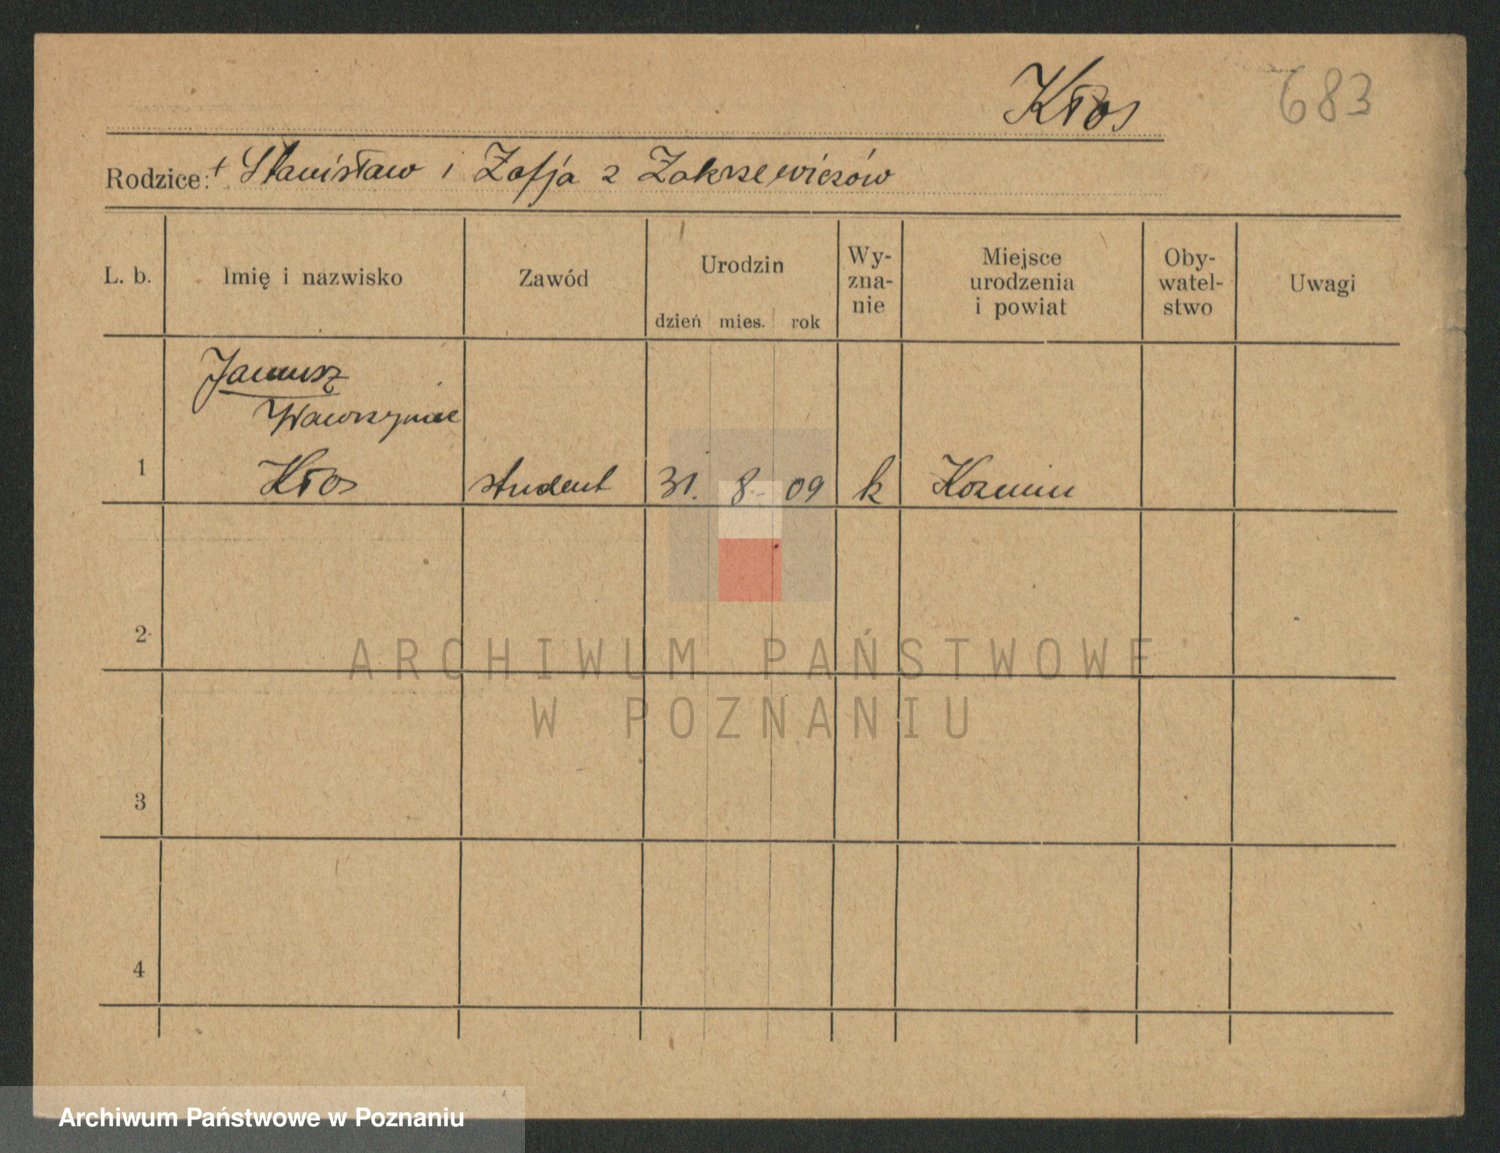 Kłos 683
Rodzice: + Stanisław i Zofja z Zakrzewiczów
L. b. Imię i nazwisko Zawód Urodzin Wy- Miejsce Oby- Uwagi
zna- urodzenia watel-
dzień mies. rok nie i powiat stwo
Janusz
Wawrzyniec
1 Kłos student 31. 8 09 k Kozmin
2
3
4
ARCHIWUM PAŃSTWOWE
W POZNANIU
Archiwum Państwowe w Poznaniu